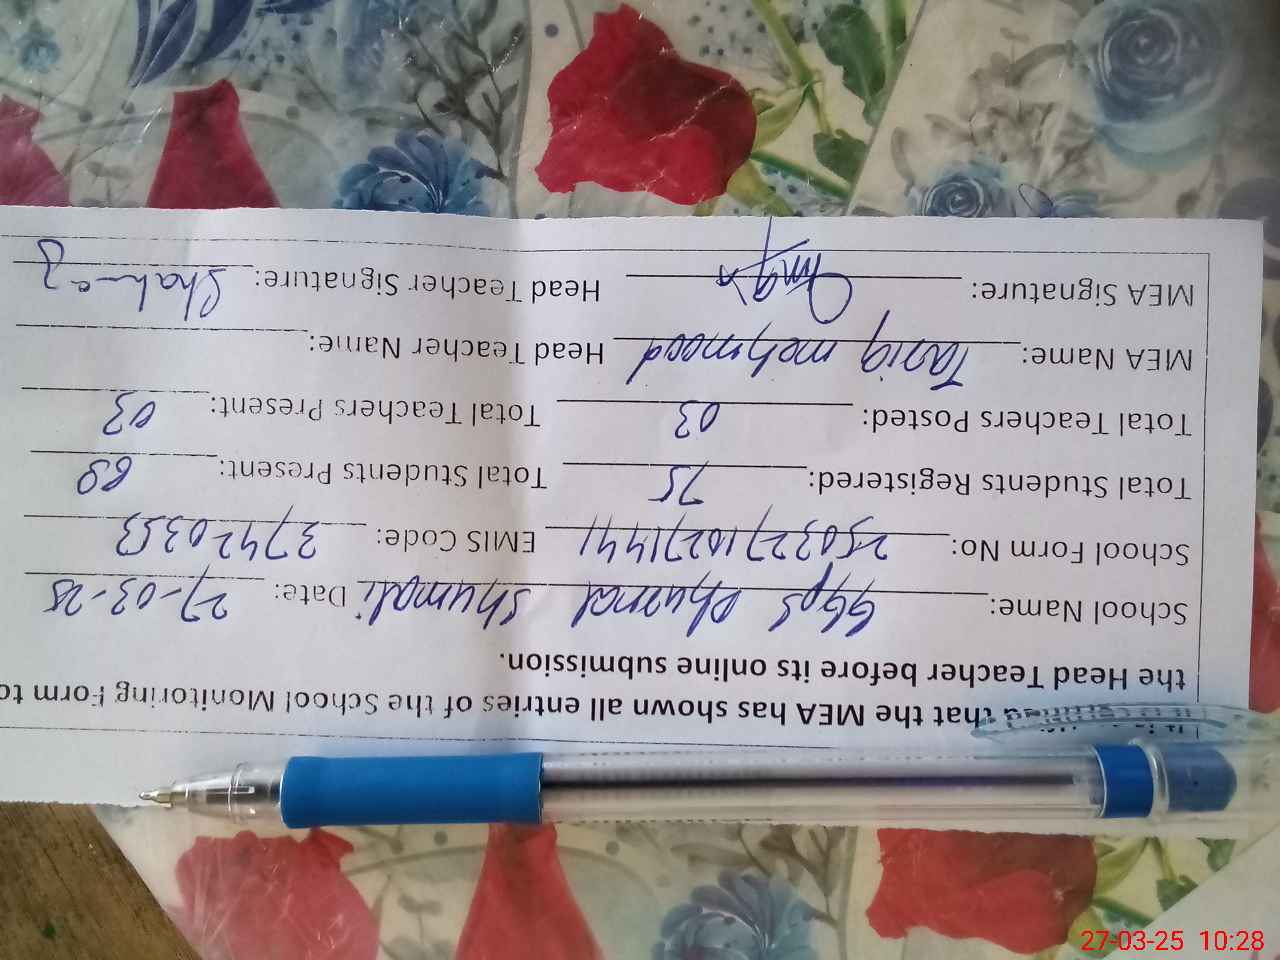 It is certified that the MEA has shown all entries of the School Monitoring Form to
the Head Teacher before its online submission.
School Name: GGPS Dhurnal Shumali Date: 27-03-25
School Form No: 25032710271441 EMIS Code: 37420353
Total Students Registered: 75 Total Students Present: 69
Total Teachers Posted: 03 Total Teachers Present: 03
MEA Name: Tariq mehmood Head Teacher Name:
MEA Signature: Head Teacher Signature:
27-03-25 10:28